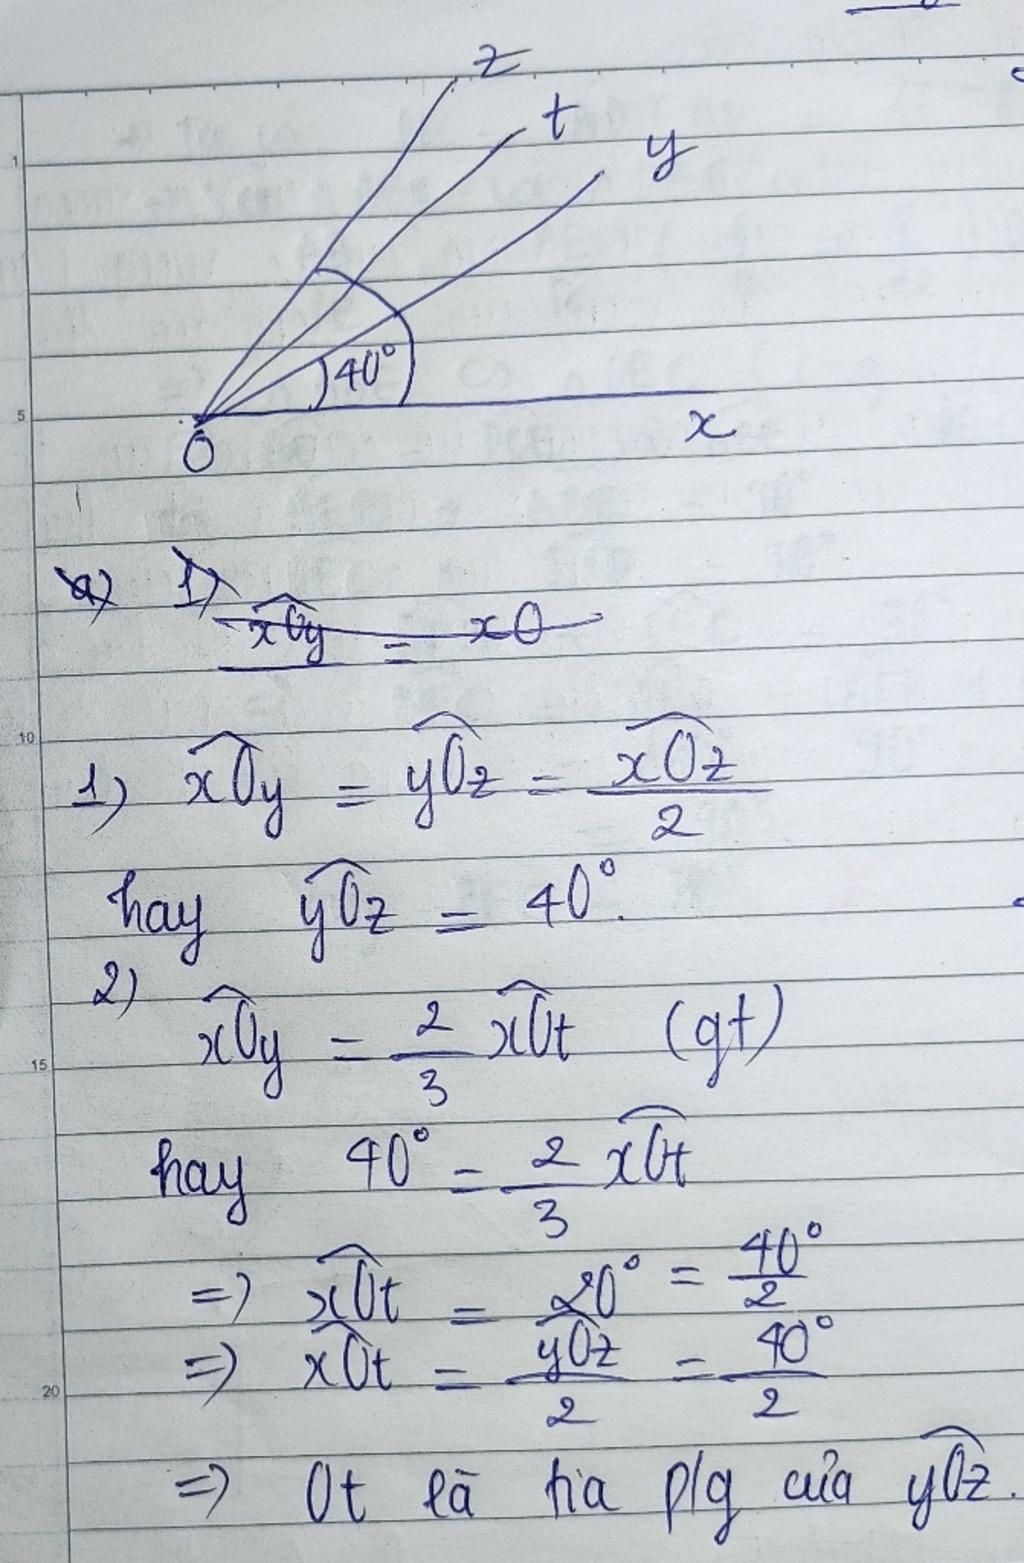 z
t
y
40°
x
O
a) 1)
xOy = xO
1) xOy = yOz = xOz/2
hay yOz = 40°.
2)
xOy = 2/3 xOt (gt)
hay 40° = 2/3 xOt
=) xOt = 20° = 40°/2
=) xOt = yOz/2 = 40°/2
=) Ot là tia p/g của yOz.
1
5
10
15
20